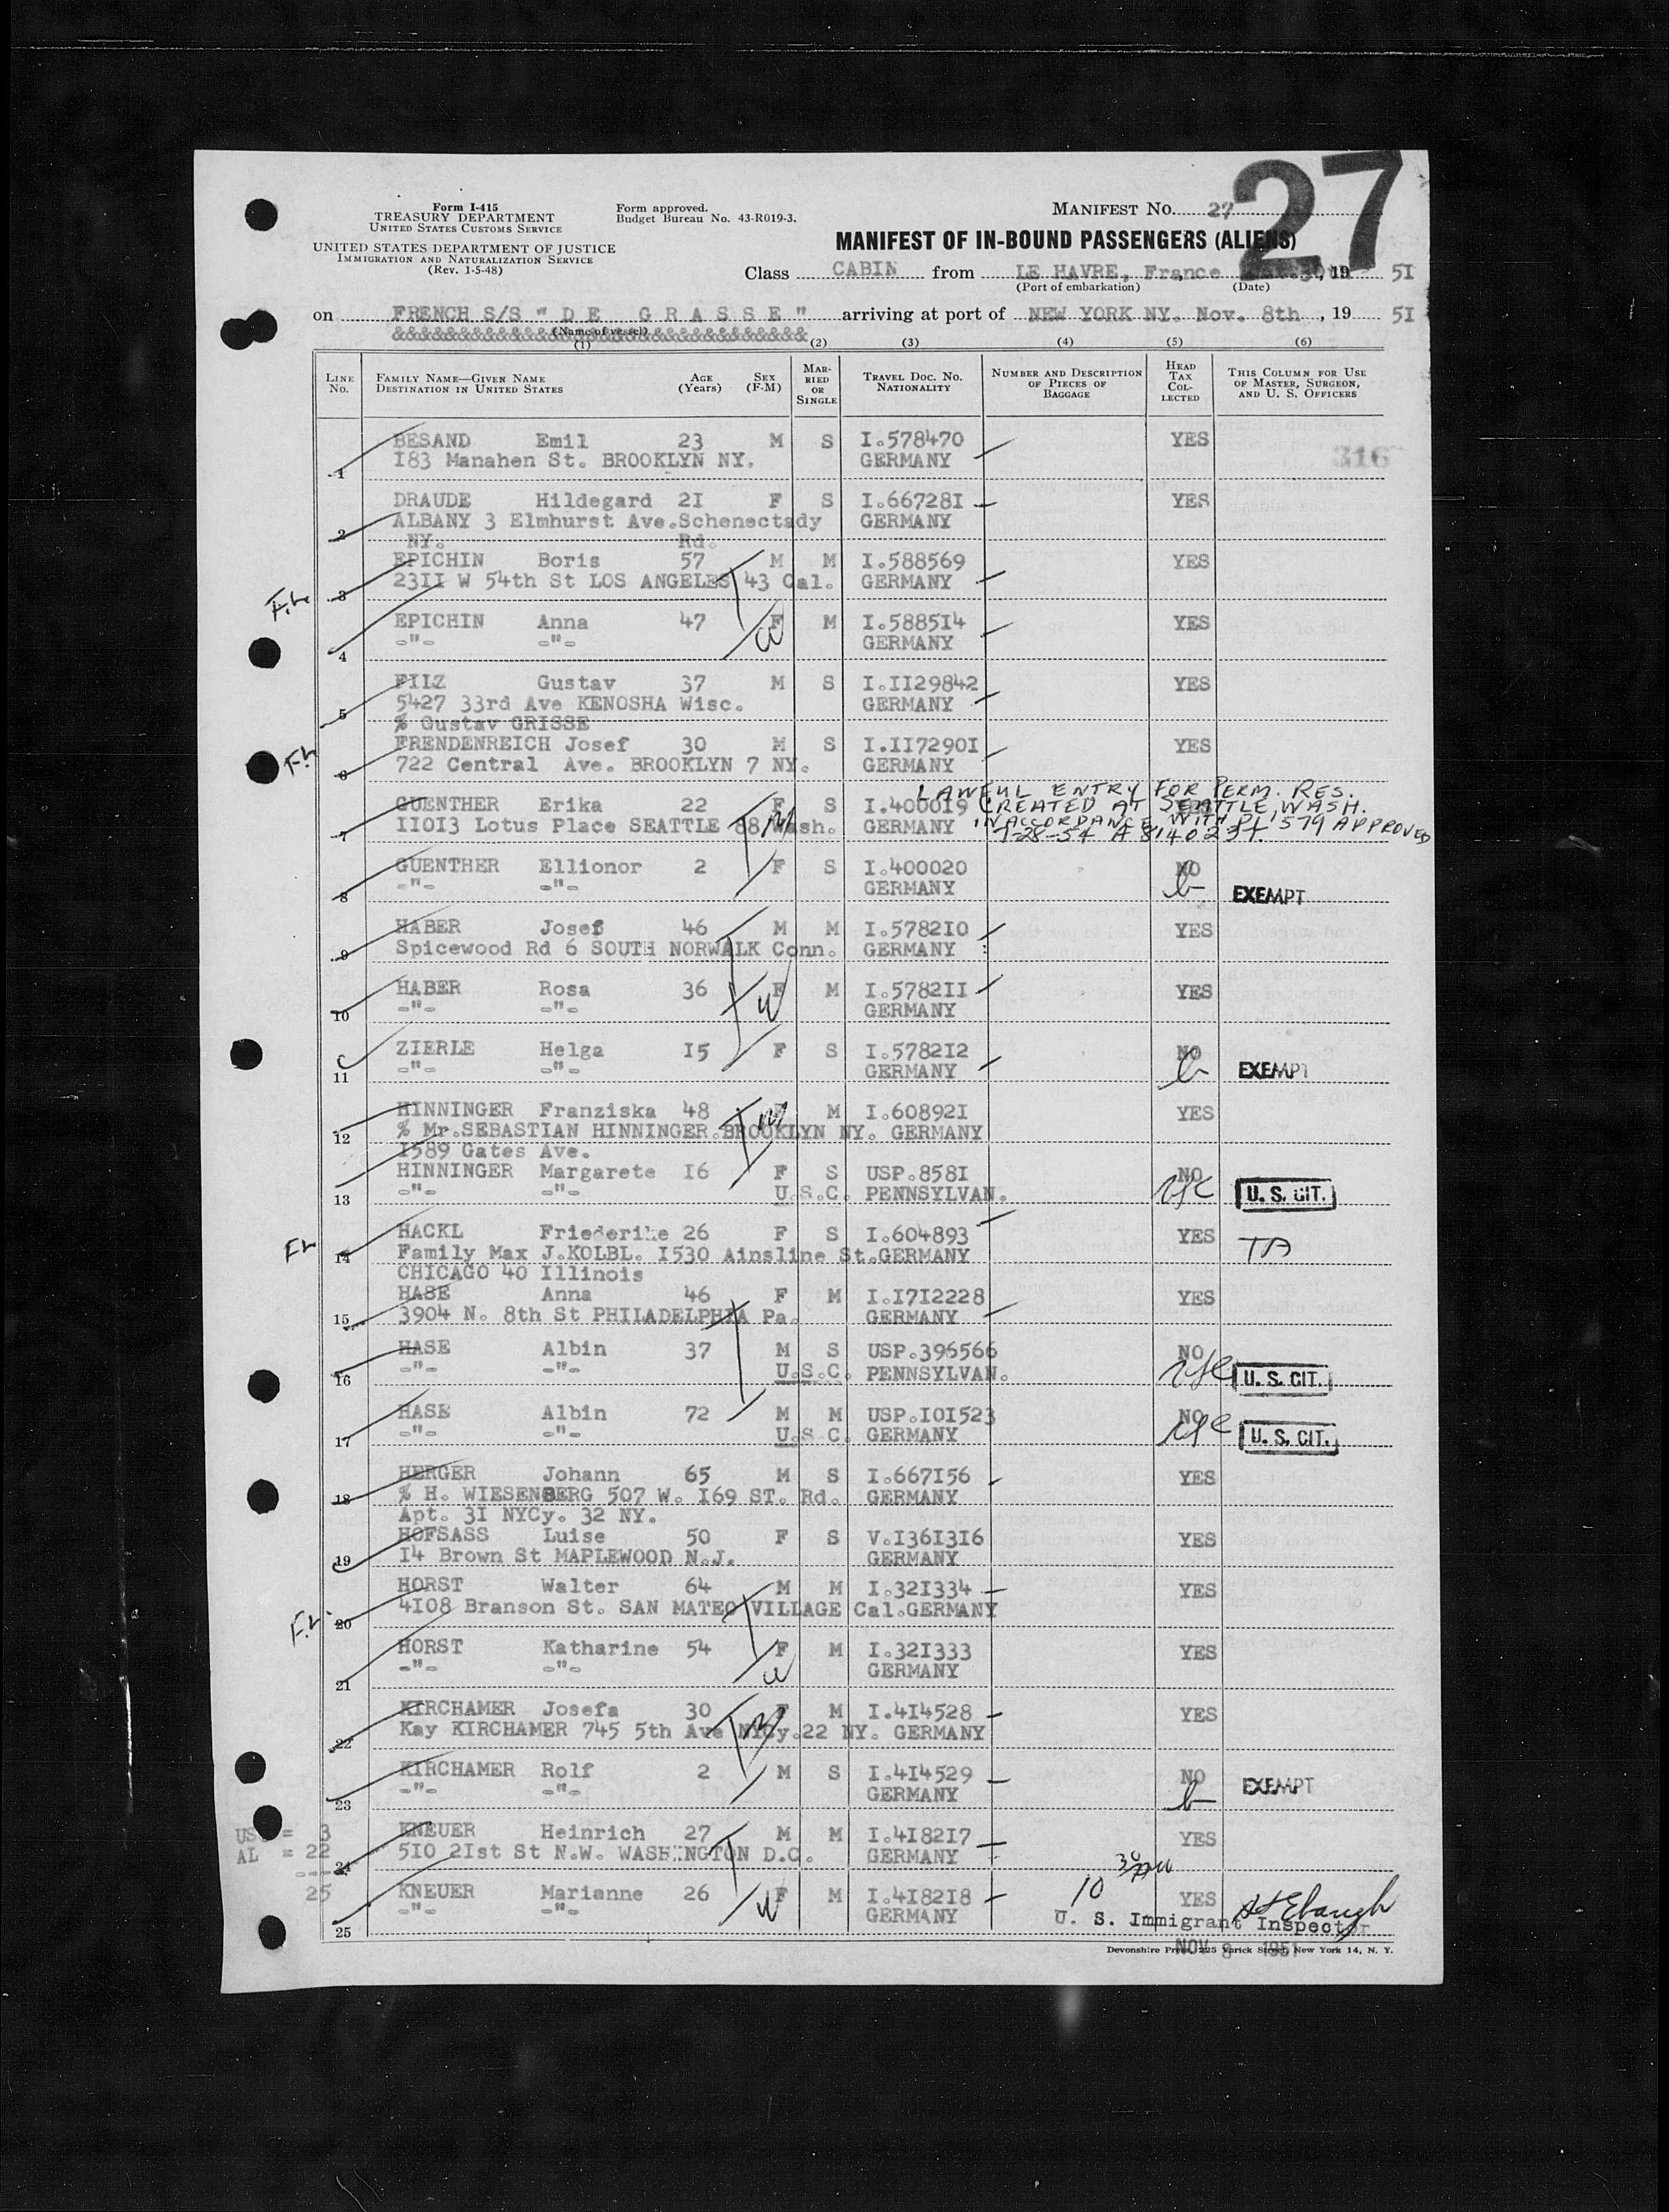 27
Form I-415
TREASURY DEPARTMENT
UNITED STATES CUSTOMS SERVICE
UNITED STATES DEPARTMENT OF JUSTICE
IMMIGRATION AND NATURALIZATION SERVICE
(Rev. 1-5-48)
Form approved.
Budget Bureau No. 43-R019-3.
MANIFEST NO. 27
MANIFEST OF IN-BOUND PASSENGERS (ALIENS)
Class CABIN from LE HAVRE, France, 19 5I
(Port of embarkation) (Date)
on FRENCH S/S " D E G R A S S E " arriving at port of NEW YORK NY. Nov. 8th , 19 5I
(Name of vessel)
(1) (2) (3) (4) (5) (6)
LINE No. FAMILY NAME—GIVEN NAME DESTINATION IN UNITED STATES AGE (Years) SEX (F-M) MARRIED OR SINGLE TRAVEL DOC. NO. NATIONALITY NUMBER AND DESCRIPTION OF PIECES OF BAGGAGE HEAD TAX COLLECTED THIS COLUMN FOR USE OF MASTER, SURGEON, AND U. S. OFFICERS
316
1 BESAND Emil 23 M S I.578470 YES
I83 Manahen St. BROOKLYN NY. GERMANY
2 DRAUDE Hildegard 2I F S I.66728I YES
ALBANY 3 Elmhurst Ave.Schenectady GERMANY
NY. Rd.
F.L. 3 EPICHIN Boris 57 M M I.588569 YES
23II W 54th St LOS ANGELES 43 Cal. GERMANY
4 EPICHIN Anna 47 F M I.5885I4 YES
-"- -"- GERMANY
5 FILZ Gustav 37 M S I.II29842 YES
5427 33rd Ave KENOSHA Wisc. GERMANY
% Gustav GRISSE
F.L. 6 FRENDENREICH Josef 30 M S I.II7290I YES
722 Central Ave. BROOKLYN 7 NY. GERMANY
LAWFUL ENTRY FOR PERM. RES.
7 GUENTHER Erika 22 F S I.4000I9 CREATED AT SEATTLE, WASH.
II0I3 Lotus Place SEATTLE 88 Wash. GERMANY IN ACCORDANCE WITH PL 579 APPROVED
8 GUENTHER Ellionor 2 F S I.400020 NO
-"- -"- GERMANY EXEMPT
9 HABER Josef 46 M M I.5782I0 YES
Spicewood Rd 6 SOUTH NORWALK Conn. GERMANY
10 HABER Rosa 36 F M I.5782II YES
-"- -"- GERMANY
11 ZIERLE Helga I5 F S I.5782I2 NO
-"- -"- GERMANY EXEMPT
12 HINNINGER Franziska 48 M I.60892I YES
% Mr.SEBASTIAN HINNINGER.BROOKLYN NY. GERMANY
I589 Gates Ave.
13 HINNINGER Margarete I6 F S USP.858I NO
-"- -"- U.S.C. PENNSYLVAN. U. S. CIT.
FL 14 HACKL Friederike 26 F S I.604893 YES TA
Family Max J.KOLBL. I530 Ainsline St.GERMANY
CHICAGO 40 Illinois
15 HASE Anna 46 F M I.I7I2228 YES
3904 N. 8th St PHILADELPHIA Pa. GERMANY
16 HASE Albin 37 M S USP.396566 NO
-"- -"- U.S.C. PENNSYLVAN. U. S. CIT.
17 HASE Albin 72 M M USP.I0I523 NO
-"- -"- U.S C. GERMANY U. S. CIT.
18 HERGER Johann 65 M S I.667I56 YES
% H. WIESENBERG 507 W. I69 ST. Rd. GERMANY
Apt. 3I NYCy. 32 NY.
19 HOFSASS Luise 50 F S V.I36I3I6 YES
I4 Brown St MAPLEWOOD N.J. GERMANY
F.L. 20 HORST Walter 64 M M I.32I334 YES
4I08 Branson St. SAN MATEO VILLAGE Cal.GERMANY
21 HORST Katharine 54 F M I.32I333 YES
-"- -"- GERMANY
22 KIRCHAMER Josefa 30 F M I.4I4528 YES
Kay KIRCHAMER 745 5th Ave NYCy.22 NY. GERMANY
23 KIRCHAMER Rolf 2 M S I.4I4529 NO
-"- -"- GERMANY EXEMPT
US = 3 24 KNEUER Heinrich 27 M M I.4I82I7 YES
AL = 22 5I0 2Ist St N.W. WASHINGTON D.C. GERMANY
25 25 KNEUER Marianne 26 F M I.4I82I8 YES
-"- -"- GERMANY U. S. Immigrant Inspector
Devonshire Press, 225 Varick Street, New York 14, N. Y.
NOV 8 1951